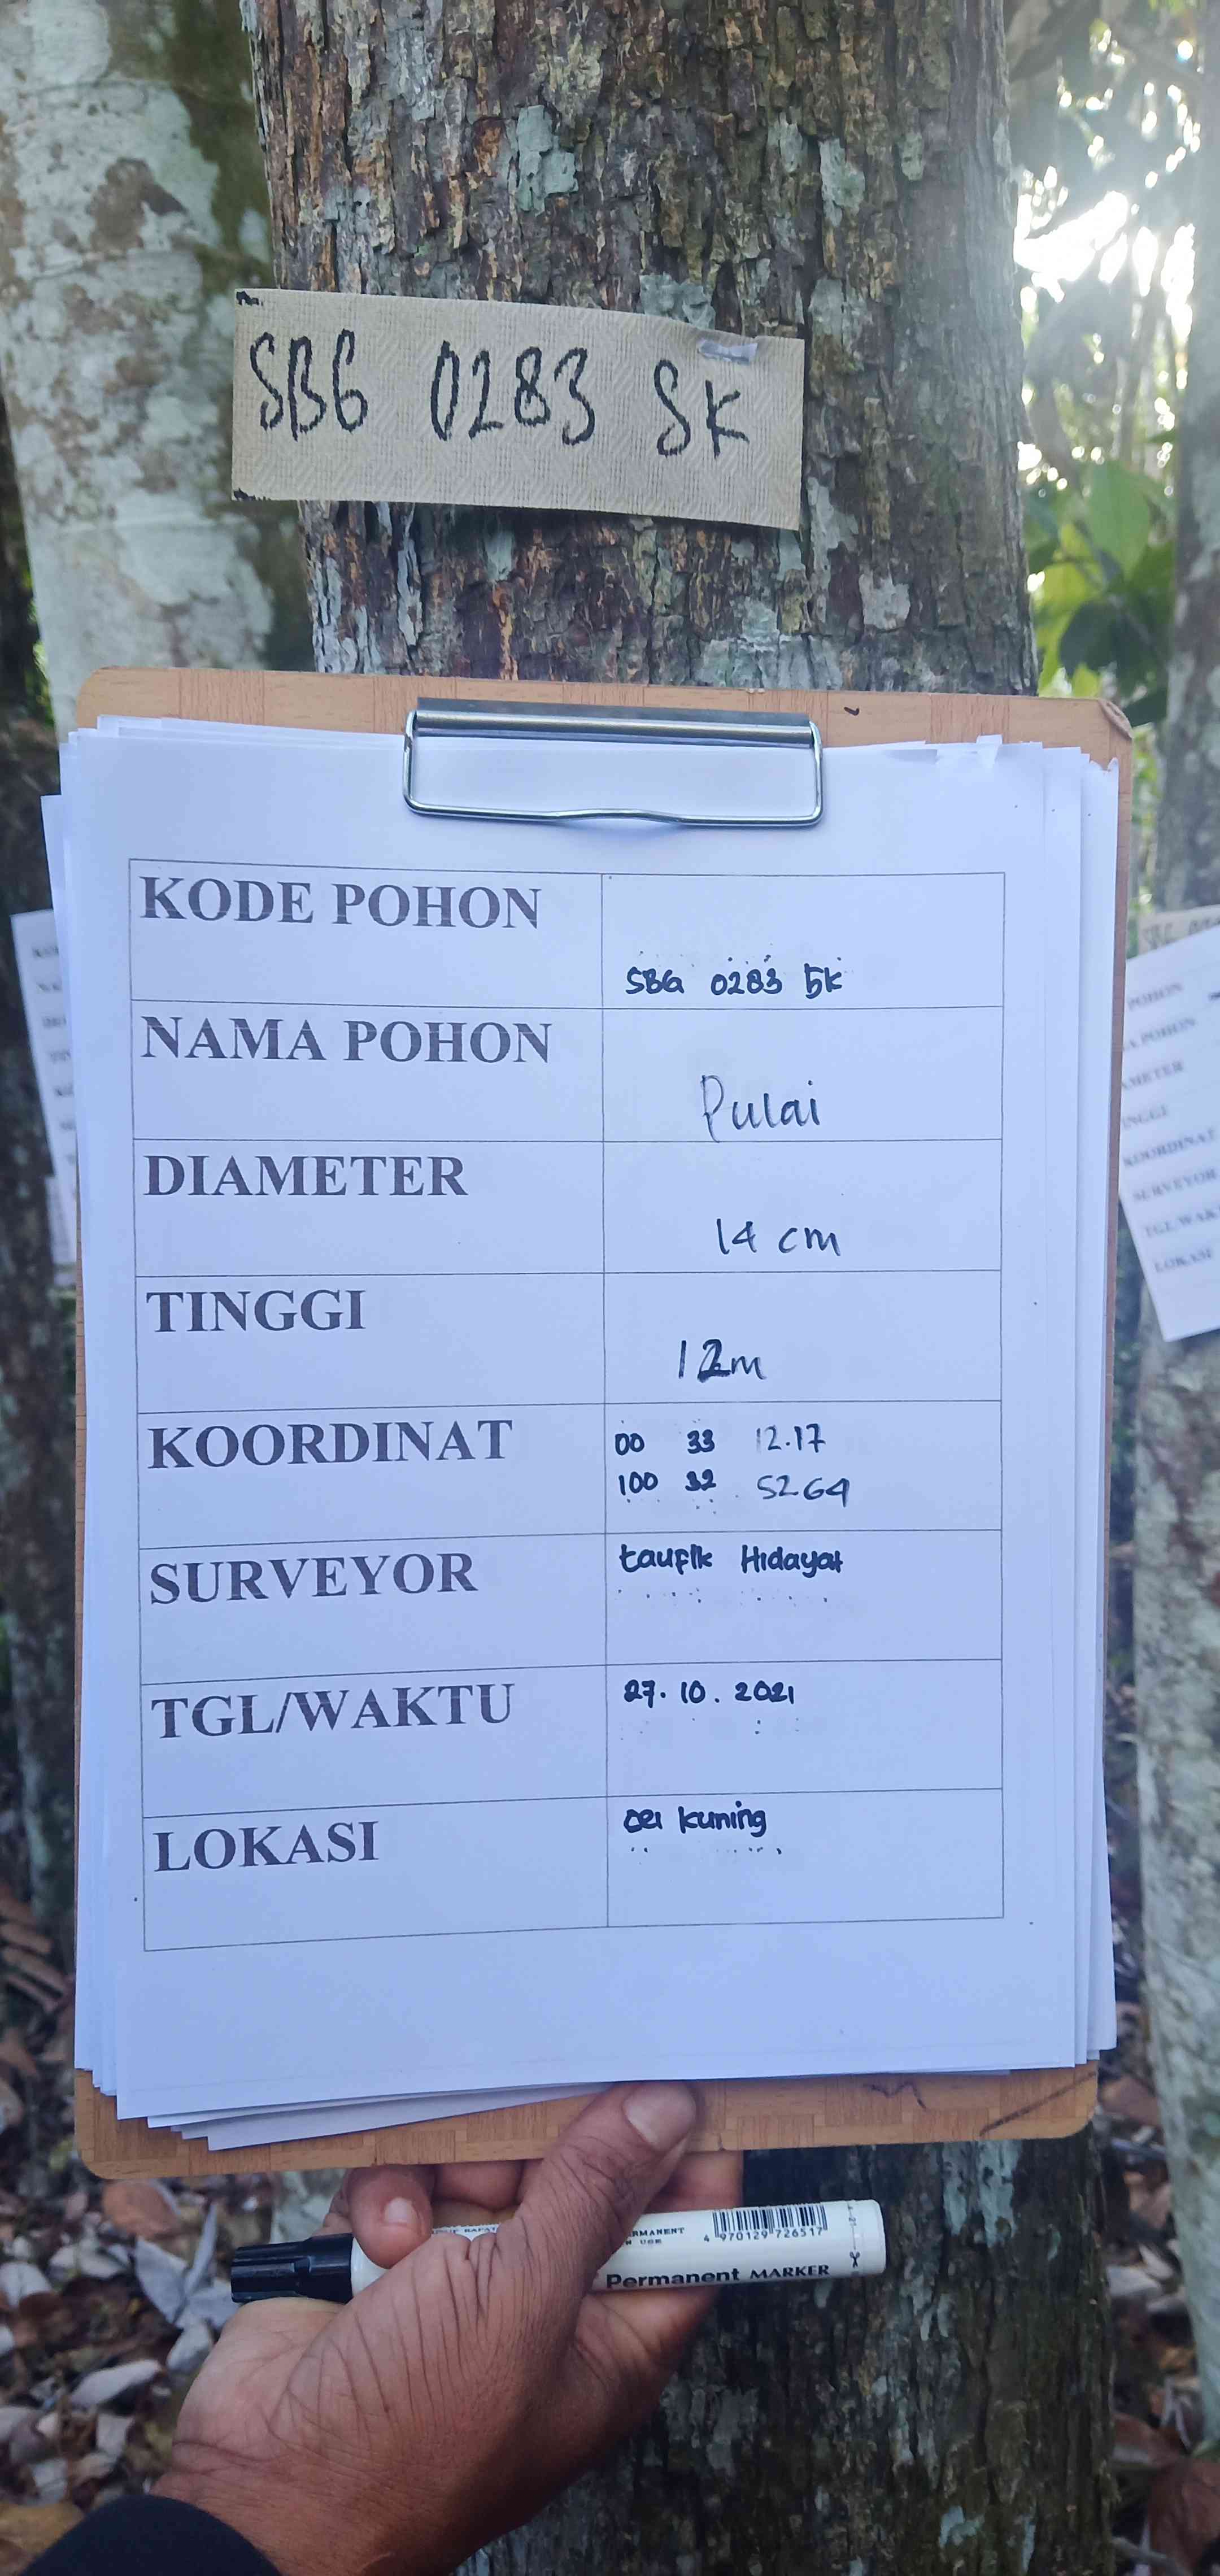 SBG 0283 SK
KODE POHON
SBG 0283 SK
NAMA POHON
Pulai
DIAMETER
14 cm
TINGGI
12m
KOORDINAT
00 33 12.17
100 32 52.64
SURVEYOR
taufik Hidayat
TGL/WAKTU
27. 10. 2021
LOKASI
sei kuning
POHON
POHON
METER
KOORDINAT
SURVEYOR
TGL/WAK
LOKASI
4 970129 726517
Permanent MARKER